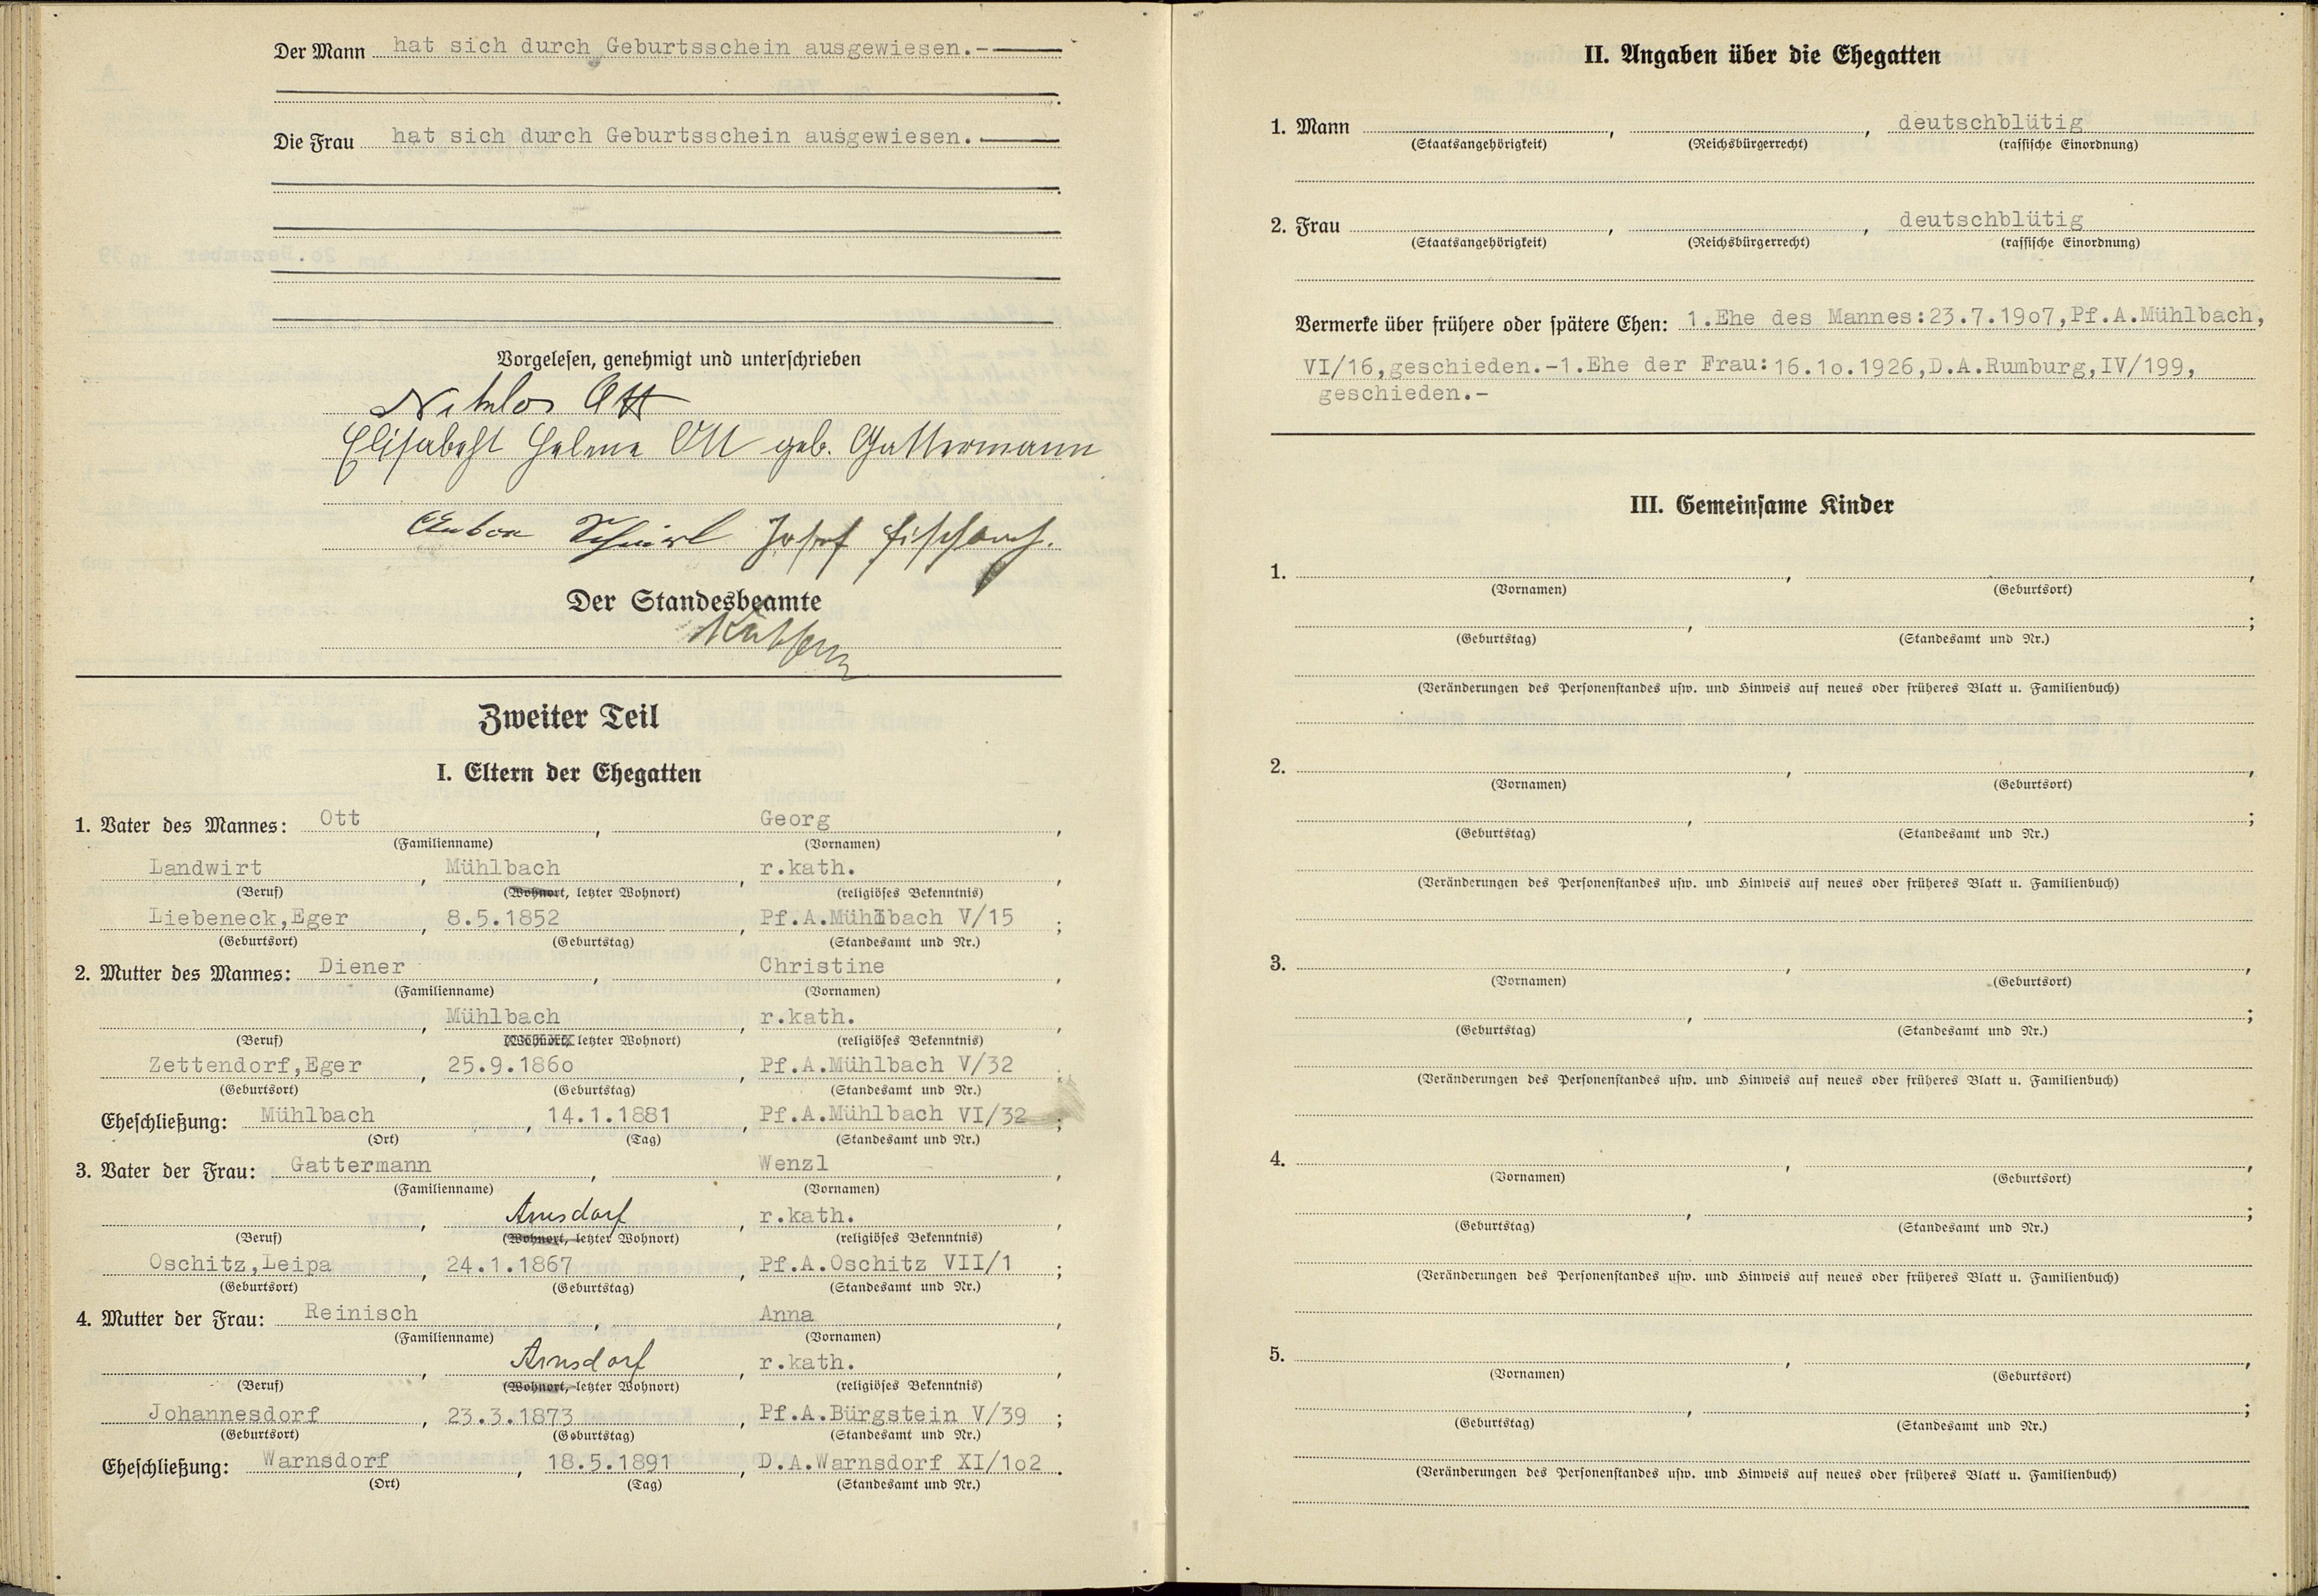 Der Mann hat sich durch Geburtsschein ausgewiesen.-
Die Frau hat sich durch Geburtsschein ausgewiesen.
Vorgelesen, genehmigt und unterschrieben
Niklos Ott
Elisabeht Helene Ott geb. Gattermann
Anton Josef
Der Standesbeamte
Zweiter Teil
I. Eltern der Ehegatten
1. Vater des Mannes: Ott, Georg,
(Familienname) (Vornamen)
Landwirt, Mühlbach, r.kath.,
(Beruf) (Wohnort, letzter Wohnort) (religiöses Bekenntnis)
Liebeneck,Eger, 8.5.1852, Pf.A.Mühlbach V/15;
(Geburtsort) (Geburtstag) (Standesamt und Nr.)
2. Mutter des Mannes: Diener, Christine,
(Familienname) (Vornamen)
, Mühlbach, r.kath.,
(Beruf) (Wohnort, letzter Wohnort) (religiöses Bekenntnis)
Zettendorf,Eger, 25.9.186o, Pf.A.Mühlbach V/32;
(Geburtsort) (Geburtstag) (Standesamt und Nr.)
Eheschließung: Mühlbach, 14.1.1881, Pf.A.Mühlbach VI/32;
(Ort) (Tag) (Standesamt und Nr.)
3. Vater der Frau: Gattermann, Wenzl,
(Familienname) (Vornamen)
, Arnsdorf, r.kath.,
(Beruf) (Wohnort, letzter Wohnort) (religiöses Bekenntnis)
Oschitz,Leipa, 24.1.1867, Pf.A.Oschitz VII/1;
(Geburtsort) (Geburtstag) (Standesamt und Nr.)
4. Mutter der Frau: Reinisch, Anna,
(Familienname) (Vornamen)
, Arnsdorf, r.kath.,
(Beruf) (Wohnort, letzter Wohnort) (religiöses Bekenntnis)
Johannesdorf, 23.3.1873, Pf.A.Bürgstein V/39;
(Geburtsort) (Geburtstag) (Standesamt und Nr.)
Eheschließung: Warnsdorf, 18.5.1891, D.A.Warnsdorf XI/1o2.
(Ort) (Tag) (Standesamt und Nr.)
II. Angaben über die Ehegatten
1. Mann , , deutschblütig
(Staatsangehörigkeit) (Reichsbürgerrecht) (rassische Einordnung)
2. Frau , , deutschblütig
(Staatsangehörigkeit) (Reichsbürgerrecht) (rassische Einordnung)
Vermerke über frühere oder spätere Ehen: 1.Ehe des Mannes:23.7.19o7,Pf.A.Mühlbach,
VI/16,geschieden.-1.Ehe der Frau:16.1o.1926,D.A.Rumburg,IV/199,
geschieden.-
III. Gemeinsame Kinder
1. , ,
(Vornamen) (Geburtsort)
, ;
(Geburtstag) (Standesamt und Nr.)
(Veränderungen des Personenstandes usw. und Hinweis auf neues oder früheres Blatt u. Familienbuch)
2. , ,
(Vornamen) (Geburtsort)
, ;
(Geburtstag) (Standesamt und Nr.)
(Veränderungen des Personenstandes usw. und Hinweis auf neues oder früheres Blatt u. Familienbuch)
3. , ,
(Vornamen) (Geburtsort)
, ;
(Geburtstag) (Standesamt und Nr.)
(Veränderungen des Personenstandes usw. und Hinweis auf neues oder früheres Blatt u. Familienbuch)
4. , ,
(Vornamen) (Geburtsort)
, ;
(Geburtstag) (Standesamt und Nr.)
(Veränderungen des Personenstandes usw. und Hinweis auf neues oder früheres Blatt u. Familienbuch)
5. , ,
(Vornamen) (Geburtsort)
, ;
(Geburtstag) (Standesamt und Nr.)
(Veränderungen des Personenstandes usw. und Hinweis auf neues oder früheres Blatt u. Familienbuch)